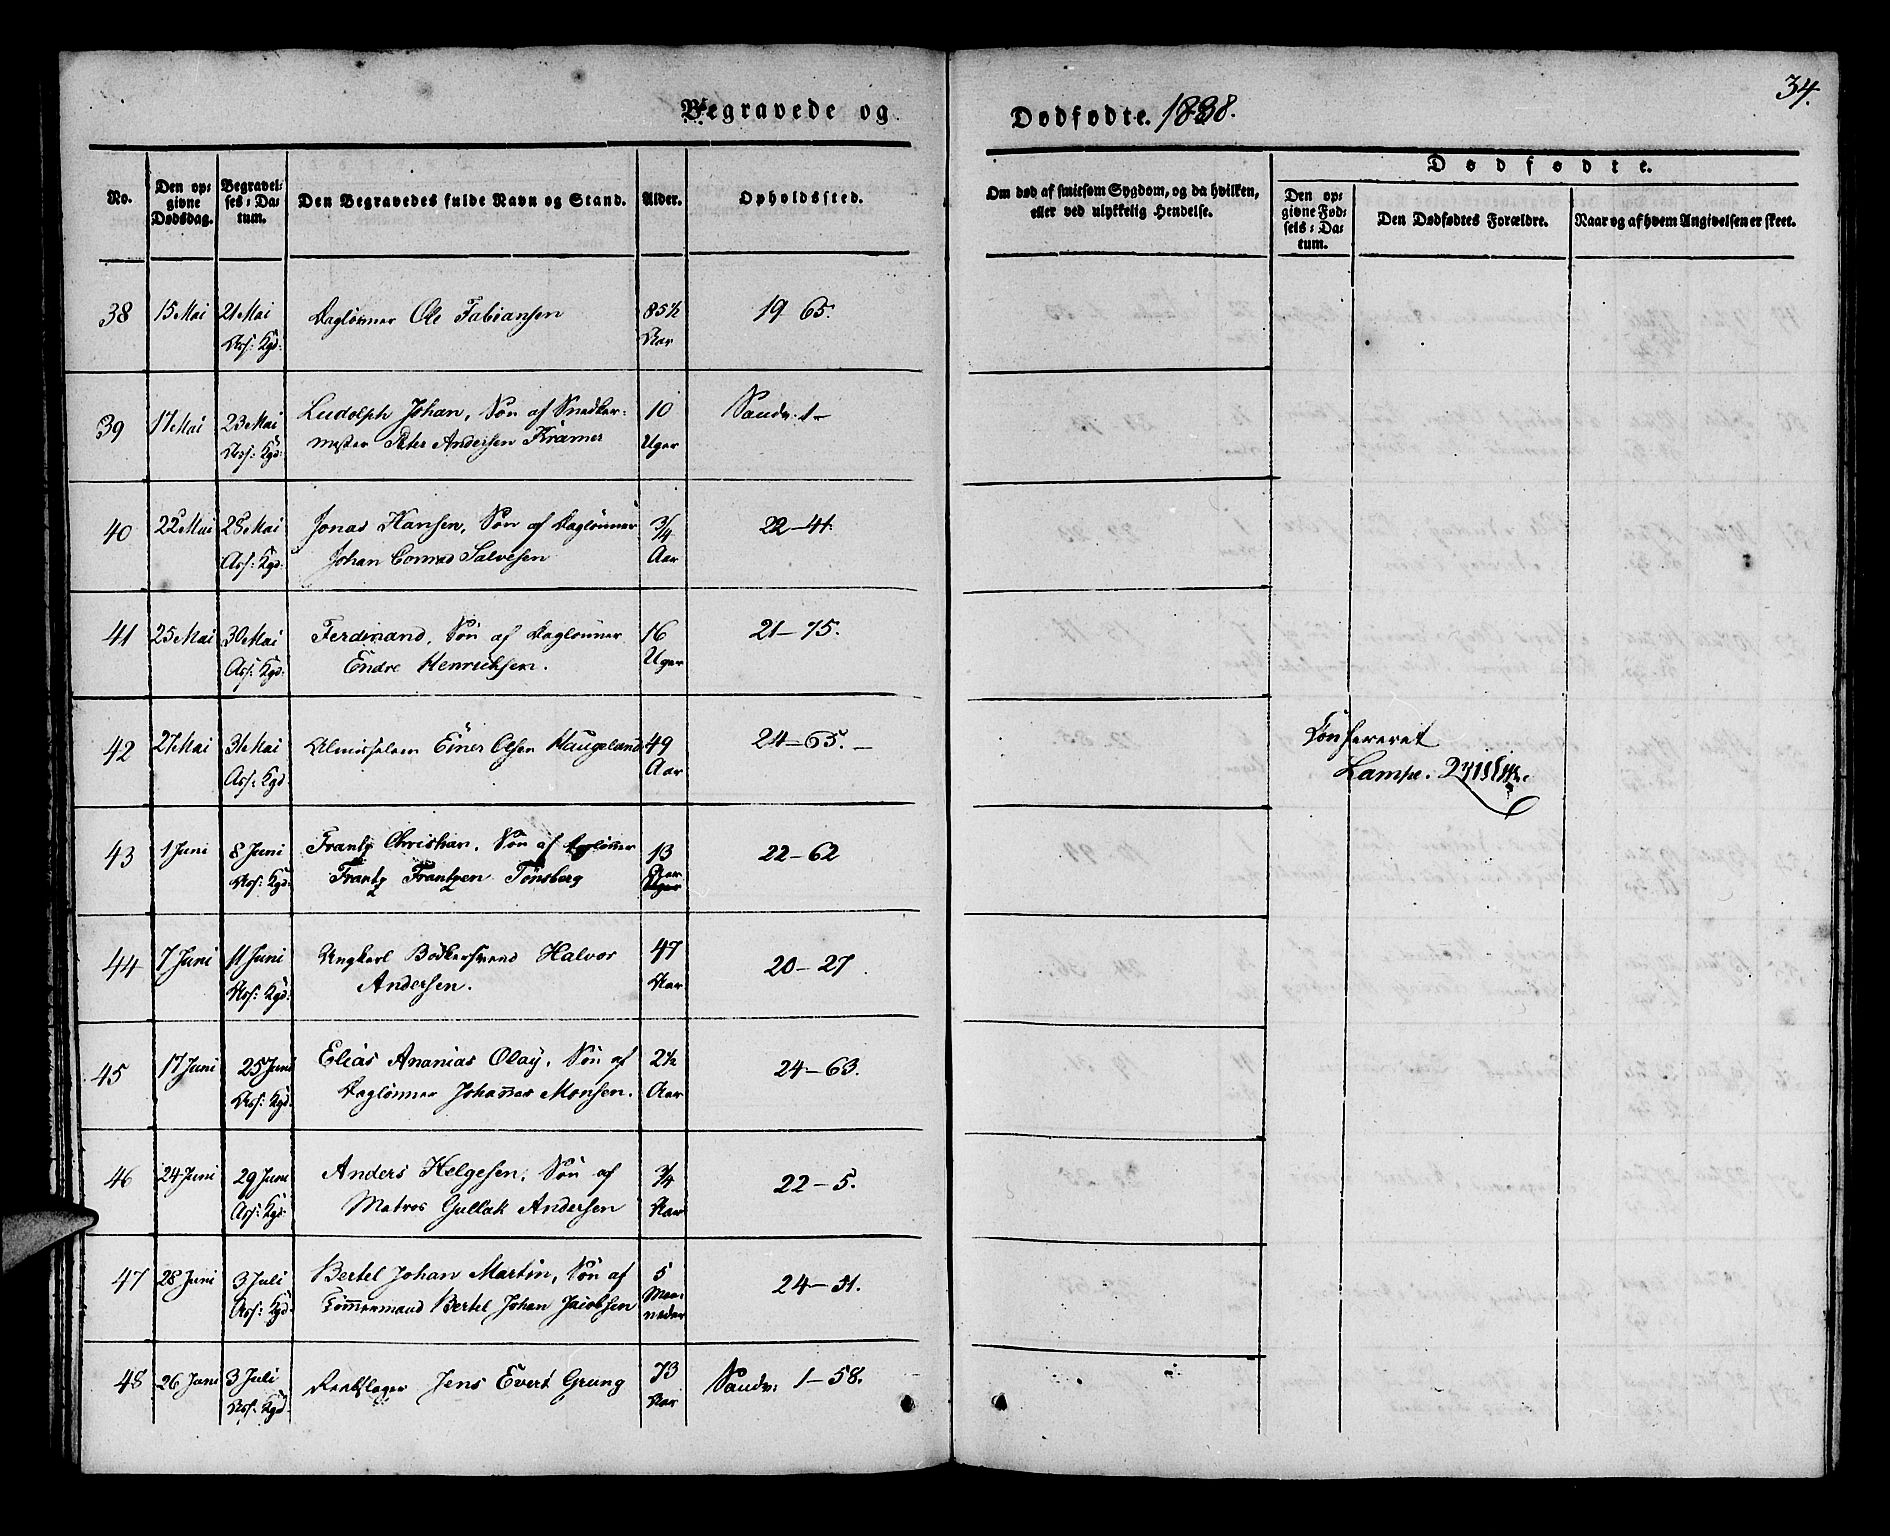 34.
Begravede og Dødfødte. 1838.
No.
Den opgivne Dødsdag.
Begravelses-Datum.
Den Begravedes fulde Navn og Stand.
Alder.
Opholdssted.
Om død af smitsom Sygdom, og da hvilken, eller ved ulykkelig Hendelse.
Dødfødte.
Den opgivne Fødsels-Datum.
Den Dødfødtes Forældre.
Naar og af hvem Angivelsen er skeet.
38 15 Mai 21 Mai Daglønner Ole Fabiansen 85½ 19 65.
Ass: Kgd: Aar
39 17 Mai 23 Mai Ludolph Johan, Søn af Snedker- 10 Sandv. 1-
Ass: Kgd: mester Peter Andersen Kramer Uger
40 22 Mai 28 Mai Jonas Hansen, Søn af Daglønner 3/4 22-41.
Ass: Kgd: Johan Conrad Salvesen Aar
41 25 Mai 30 Mai Ferdinand, Søn af Daglønner 16 21-75.
Ass: Kgd: Endre Henrichsen. Uger
42 27 Mai 31 Mai Almisselem Einer Olsen Haugeland 49 24-65.-
Ass: Kgd Aar
Konfereret
Lampe.
43 1 Juni 8 Juni Frantz Christian, Søn af Daglønner 13 22-62
Ass: Kgd: Frantz Frantzen Tønsberg Uger
44 7 Juni 11 Juni Ungkarl Bødkersvend Halvor 47 20-27.
Ass: Kgd: Andersen. Aar
45 17 Juni 25 Juni Elias Ananias Olay, Søn af 2½ 24-63.
Ass: Kgd: Daglønner Johannes Monsen. Aar
46 24 Juni 29 Juni Anders Helgesen, Søn af 3/4 22-5.
Ass: Kgd: Matros Gullak Andersen Aar
47 28 Juni 3 Juli Bertel Johan Martin, Søn af 5 24-51.
Ass: Kgd: Tømmermand Bertel Johan Jacobsen Maaneder
48 26 Juni 3 Juli Reebslager Jens Evert Grung 73 Sandv: 1-58.
Ass: Kgd: Aar